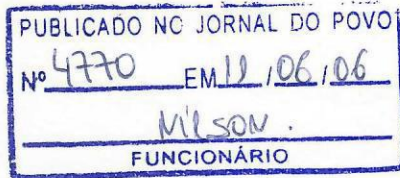 PUBLICADO NO JORNAL DO POVO
Nº 4770 EM 11/06/06
NILSON.
FUNCIONÁRIO